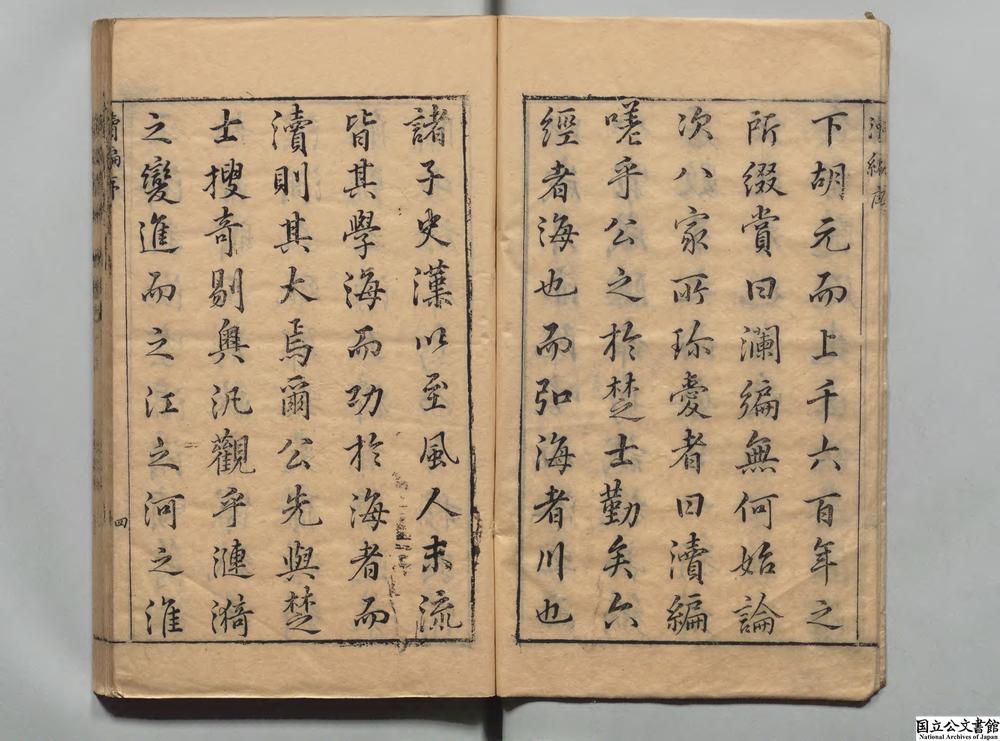 瀆編序
下胡元而上千六百年之
所綴賞曰瀾編無何始論
次八家所珎愛者曰瀆編
嗟乎公之於楚士勤矣六
經者海也而弘海者川也
諸子史漢以至風人末流
皆其學海而功於海者而
瀆則其大焉爾公先與楚
士搜奇剔奧汎觀乎漣漪
之變進而之江之河之淮
瀆編序
四
国立公文書館
National Archives of Japan